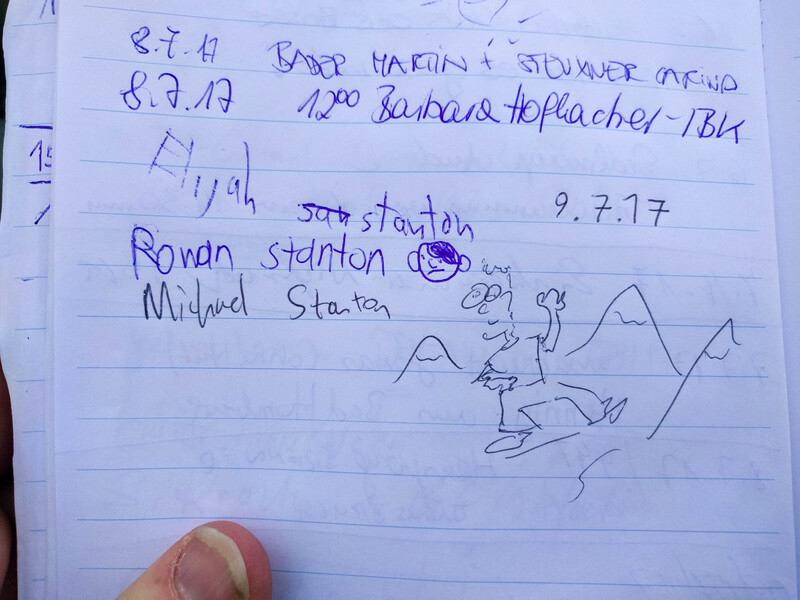 8.7.17 BADER MARTIN + STEUXNER CARINA
8.7.17 12⁰⁰ Barbara Hoflacher - IBK
Elijah stanton 9.7.17
Rowan stanton
Michael Stanton